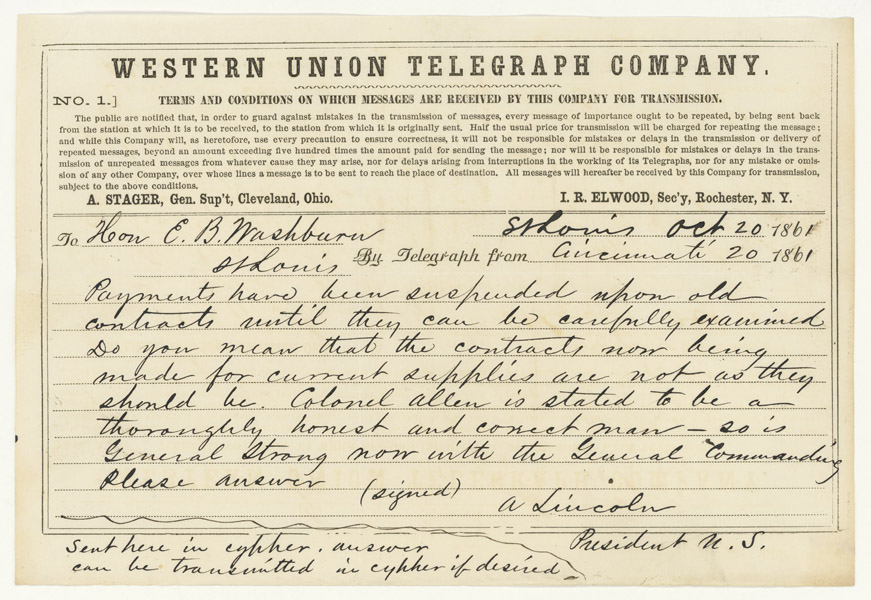 WESTERN UNION TELEGRAPH COMPANY.
NO. 1.] TERMS AND CONDITIONS ON WHICH MESSAGES ARE RECEIVED BY THIS COMPANY FOR TRANSMISSION.
The public are notified, that, in order to guard against mistakes in the transmission of messages, every message of importance ought to be repeated, by being sent back
from the station at which it is to be received, to the station from which it is originally sent. Half the usual price for transmission will be charged for repeating the message;
and while this Company will, as heretofore, use every precaution to ensure correctness, it will not be responsible for mistakes or delays in the transmission or delivery of
repeated messages, beyond an amount exceeding five hundred times the amount paid for sending the message; nor will it be responsible for mistakes or delays in the trans-
mission of unrepeated messages from whatever cause they may arise, nor for delays arising from interruptions in the working of its Telegraphs, nor for any mistake or omis-
sion of any other Company, over whose lines a message is to be sent to reach the place of destination. All messages will hereafter be received by this Company for transmission,
subject to the above conditions.
A. STAGER, Gen. Sup't, Cleveland, Ohio. I. R. ELWOOD, Sec'y, Rochester, N. Y.
St Louis Oct 20 1861
To Hon E. B. Washburn
St Louis By Telegraph from Cincinnati 20 1861
Payments have been suspended upon old
contracts until they can be carefully examined
Do you mean that the contracts now being
made for current supplies are not as they
should be. Colonel Allen is stated to be a
thoroughly honest and correct man – so is
General Strong now with the General Commanding
Please answer
(signed) A Lincoln
President U. S.
Sent here in cypher. answer
can be transmitted in cypher if desired